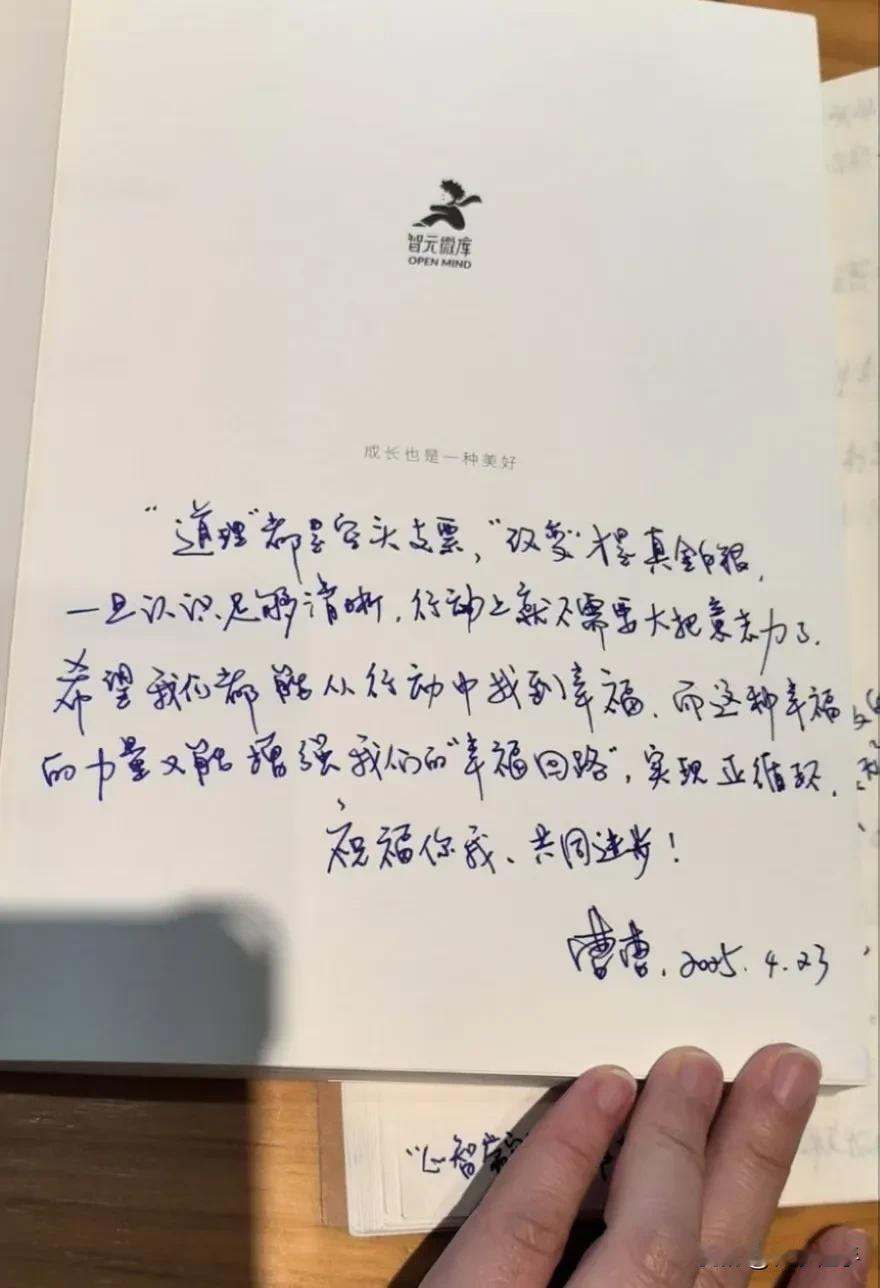 智元微库
OPEN MIND
成长也是一种美好
“道理”都是空头支票，“改变”才是真金白银，
一旦认识足够清晰，行动上就不需要大把意志力了．
希望我们都能从行动中找到幸福，而这种幸福
的力量又能增强我们的“幸福回路”，实现正循环．
祝福你我、共同进步！
曹曹．2025.4.23
“心智